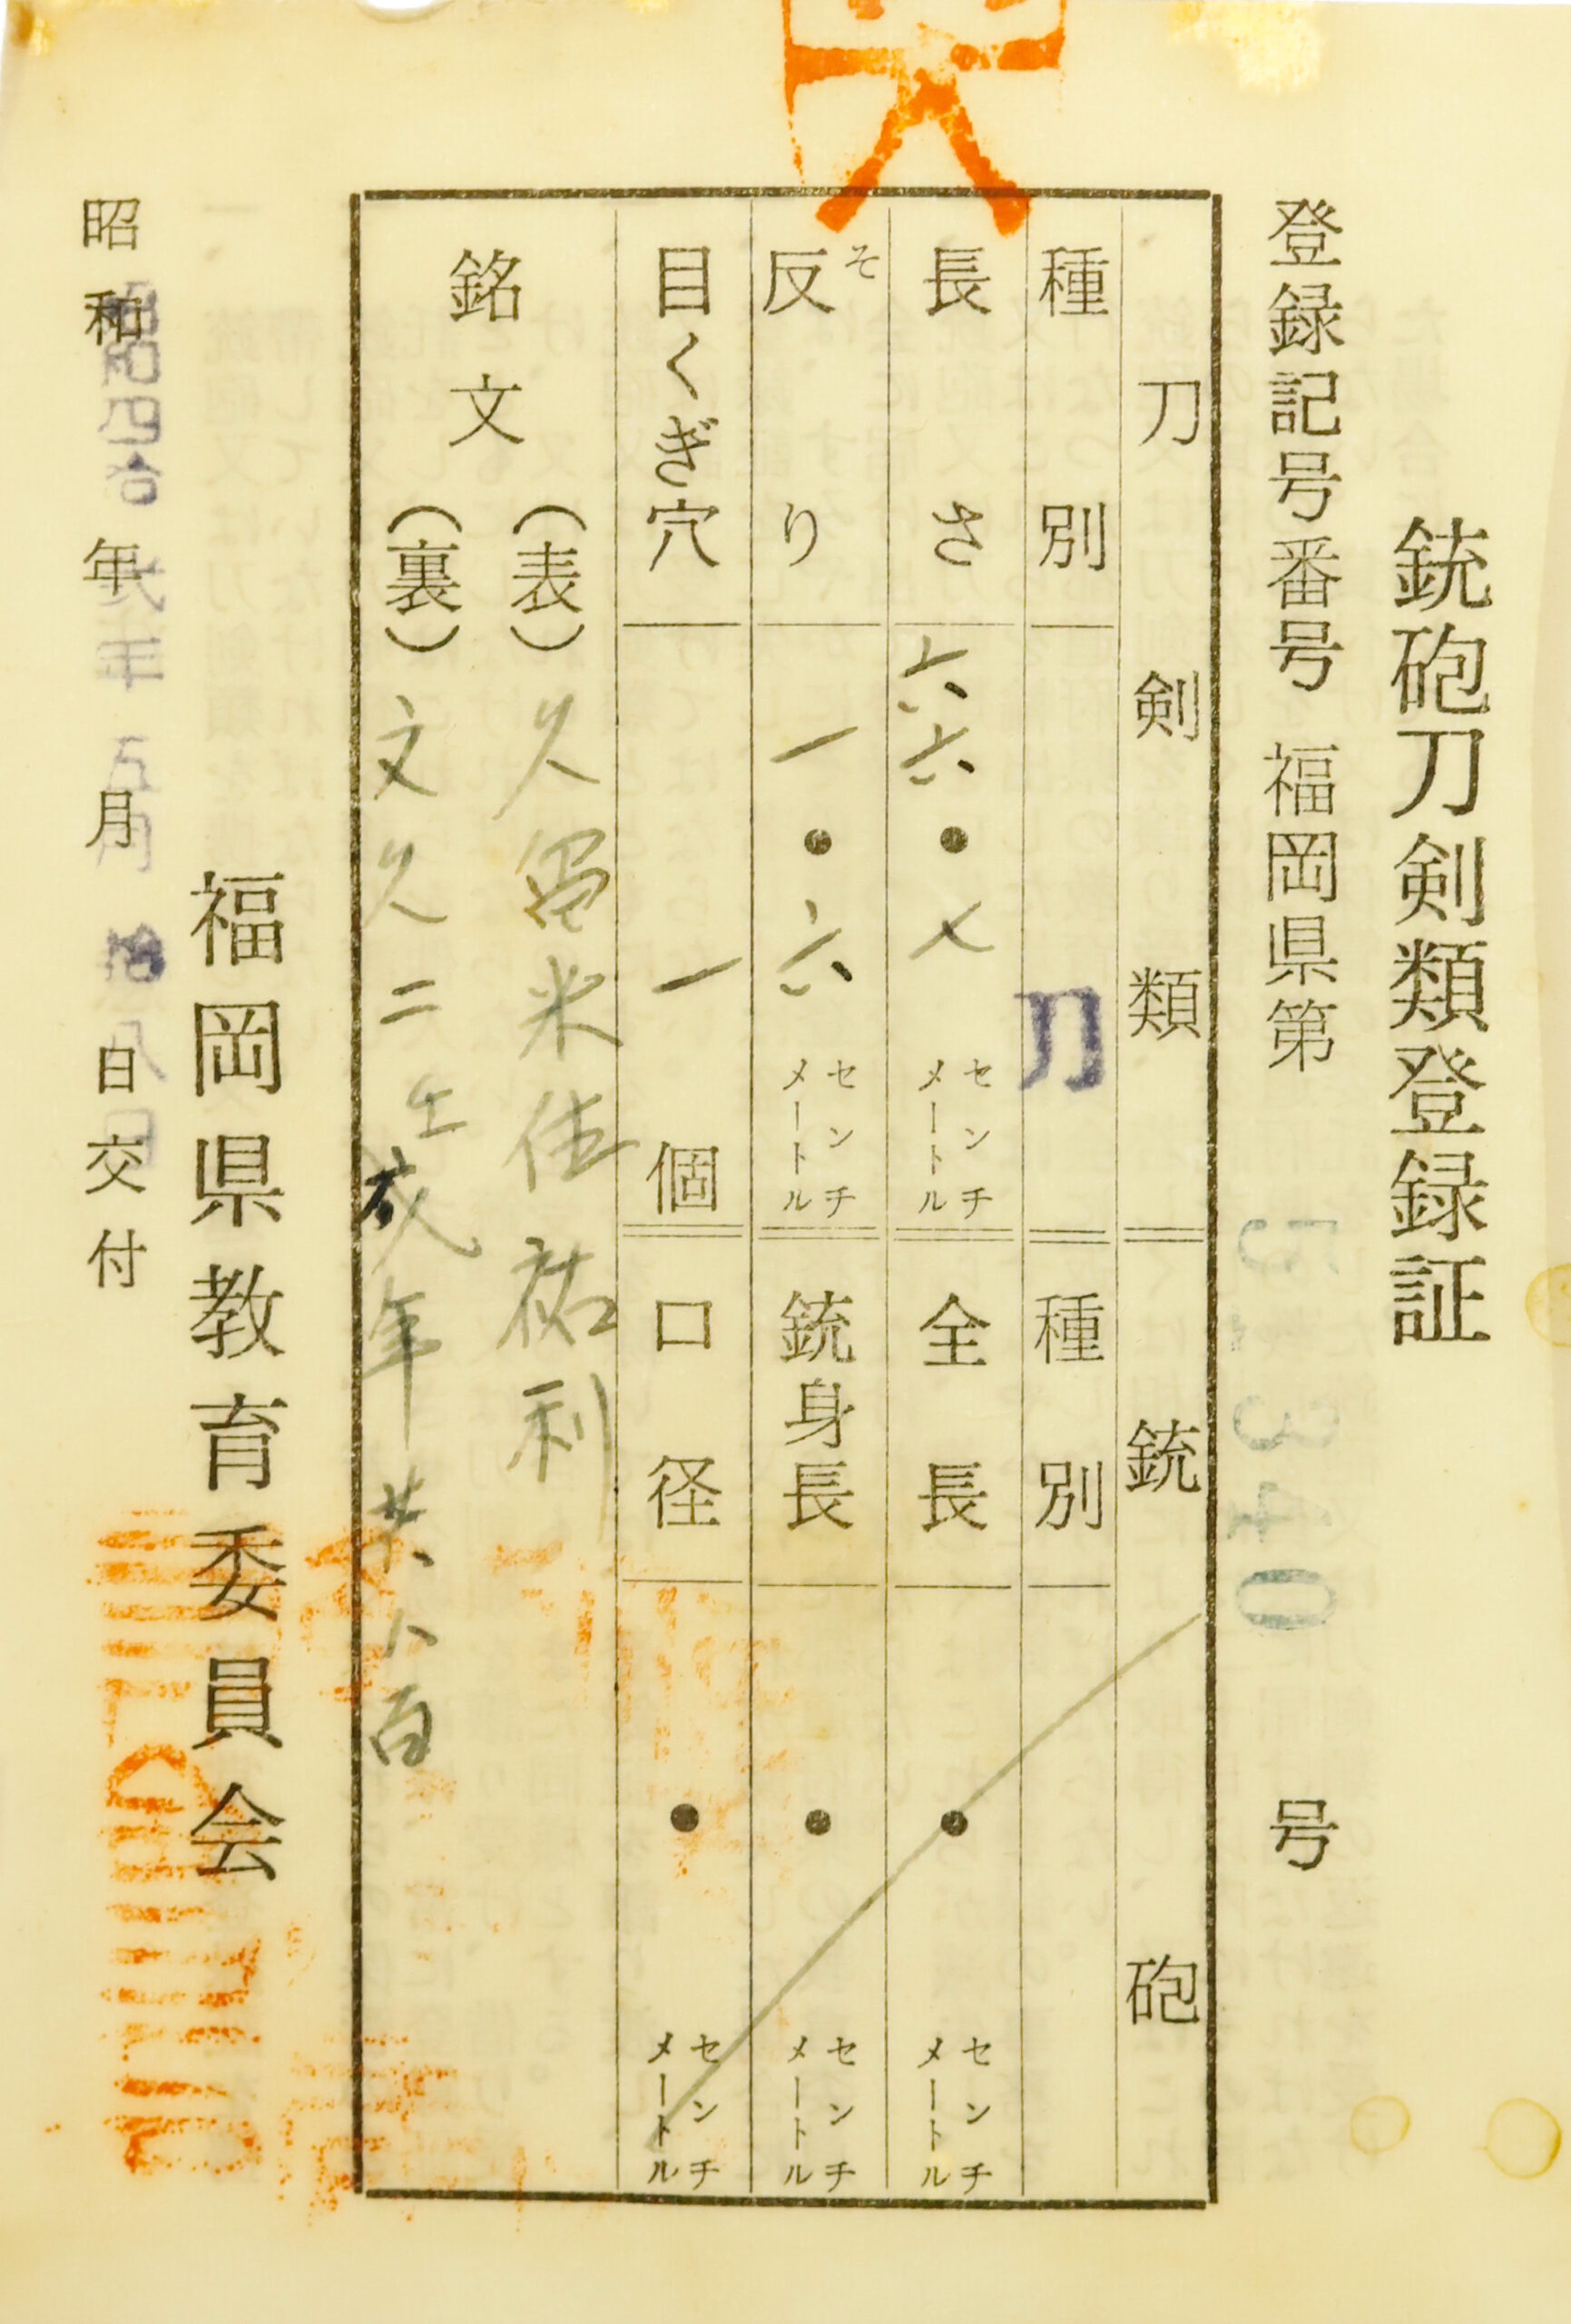 銃砲刀剣類登録証
登録記号番号 福岡県第 号
刀剣類 銃砲
種別 刀 種別
長さ 六六・七 センチメートル 全長 ・ センチメートル
反り 一・六 センチメートル 銃身長 ・ センチメートル
そ
目くぎ穴 一 個 口径 ・ センチメートル
銘文
(表) 久留米住祐利
(裏) 文久二壬戌年
福岡県教育委員会
昭和 年 月 日交付
昭和四拾 年五月拾八日